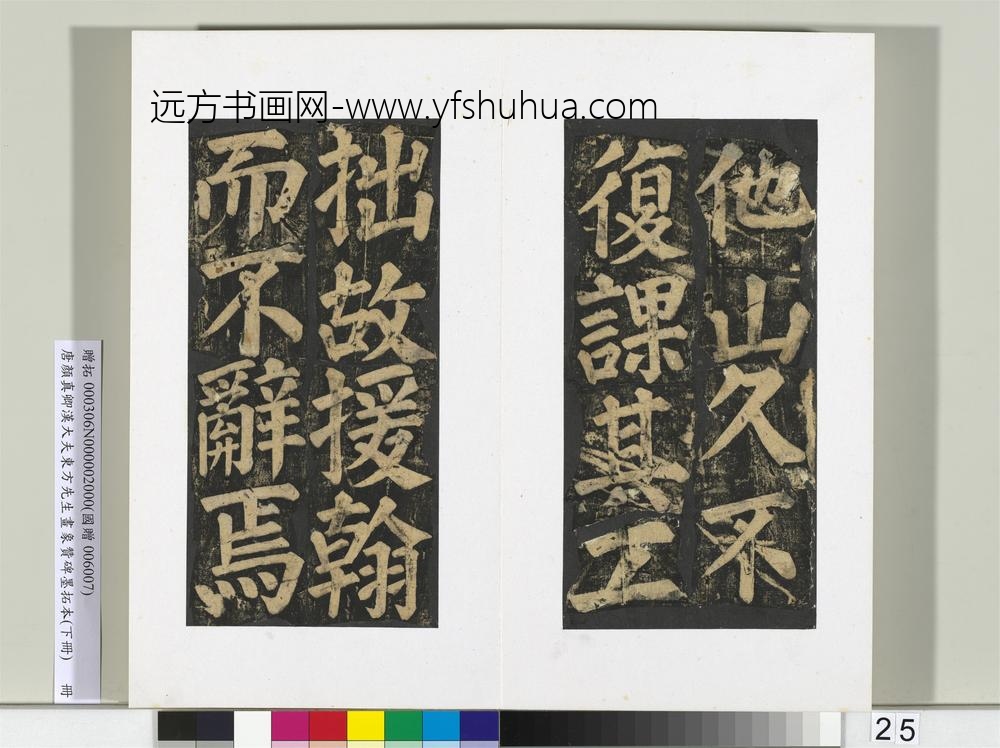 远方书画网-www.yfshuhua.com
他山久不
復課其工
拙故援翰
而不辭焉
贈拓 000306N000002000(國贈 006007)
唐顏真卿漢大夫東方先生畫象贊碑墨拓本(下冊) 冊
25